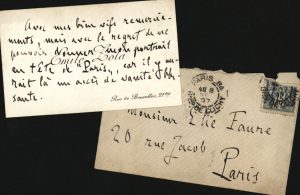 Avec mes bien vifs remercie-
ments, mais avec le regret de ne
pouvoir donner mon portrait
Emile Zola
en tête de Paris, car il y
aurait là un accès de vanité
sante.
Rue de Bruxelles, 21 bis
PARIS
Monsieur Elie Faure
20 rue Jacob
Paris